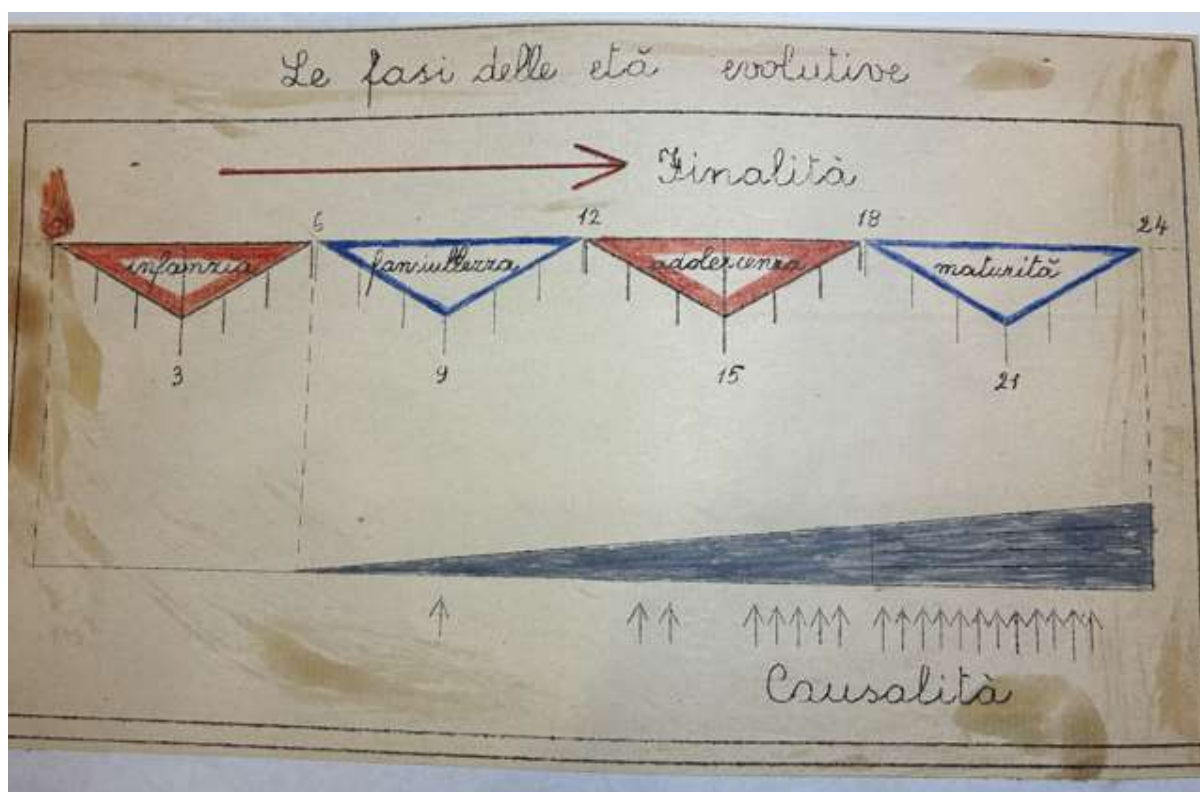 Le fasi delle età evolutive
Finalità
6 12 18 24
infanzia fanciullezza adolescenza maturità
3 9 15 21
Causalità